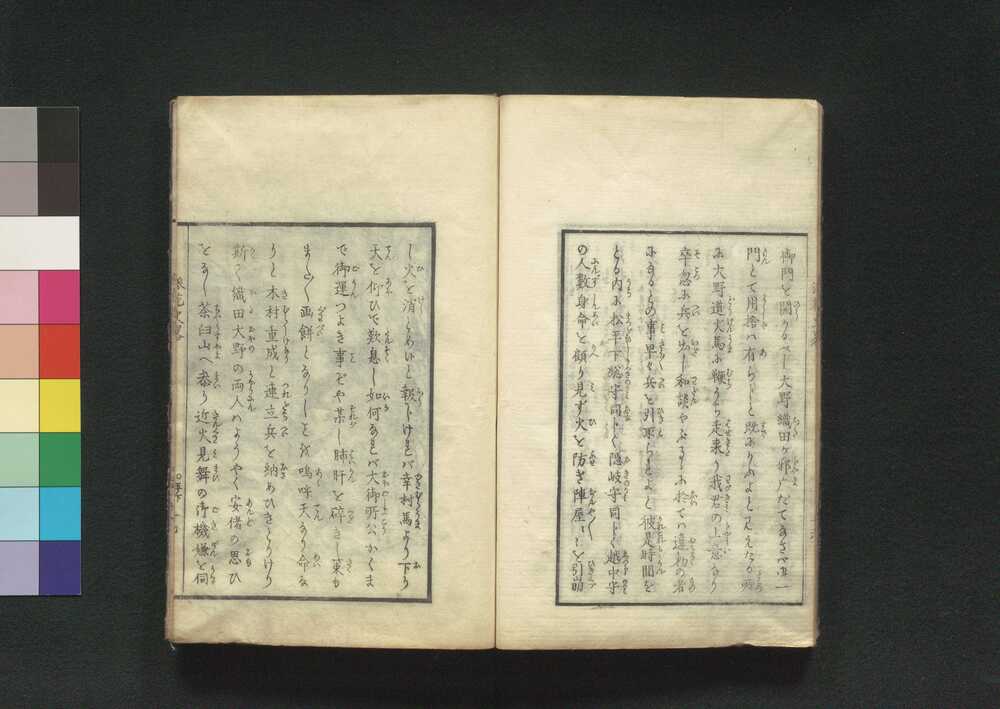 御門を開くべし大野織田が邪广だてなさバ唯一
門とて用捨ハ有らじと既にかふよと見えたる時
に大野道火馬に鞭うち走来り我君の上意なり
卒忽に兵を出し和談やぶるゝに於てハ違勅の者
になるとの事早々兵を引取られよと彼是時間を
とる内に松平下総守同じく隠岐守同じく越中守
の人数身命を顧り見ず火を防ぎ陣屋〳〵を引崩
し火を消しめいと報じけれバ幸村馬より下り
天を仰ひで歎息し如何なれバ大御所公かくま
で御運つよき事ぞや某し肺肝を碎きし事も
また〳〵画餅となりしことよ嗚呼天なり命な
りと木村重成と連立兵を納めひきとりけり
斯て織田大野の両人ハやうやく安堵の思ひ
をなし茶臼山へ参り近火見舞の御機嫌を伺